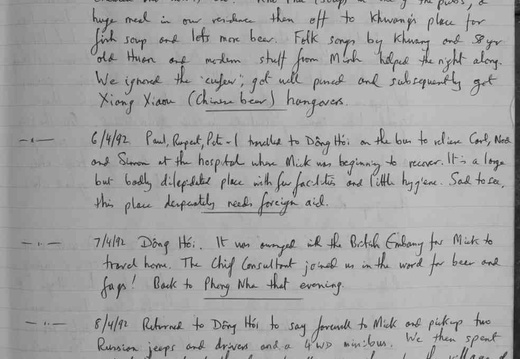 huge meal in our residence then off to Khwang's place for
fish soup and lots more beer. Folk songs by Khwang and 58 yr
old Huan and modern stuff from Minh helped the night along.
We ignored the 'curfew', got well and subsequently got
Xiang Xiaou (Chinese bear) hangovers.
6/4/92 Paul, Rupert, Pete + I travelled to Dông Hói on the bus to relieve Carl, Nod
and Simon at the hospital where Mick was beginning to recover. It is a large
but badly dilapidated place with few facilities and little hygiene. Sad to see,
this place desperately needs foreign aid.
7/4/92 Dông Hói. It was arranged with the British Embassy for Mick to
travel home. The Chief Consultant joined us in the ward for beer and
fags! Back to Phong Nha that evening.
8/4/92 Returned to Dông Hói to say farewell to Mick and pick up two
Russian jeeps and drivers and a 4WD minibus. We then spent